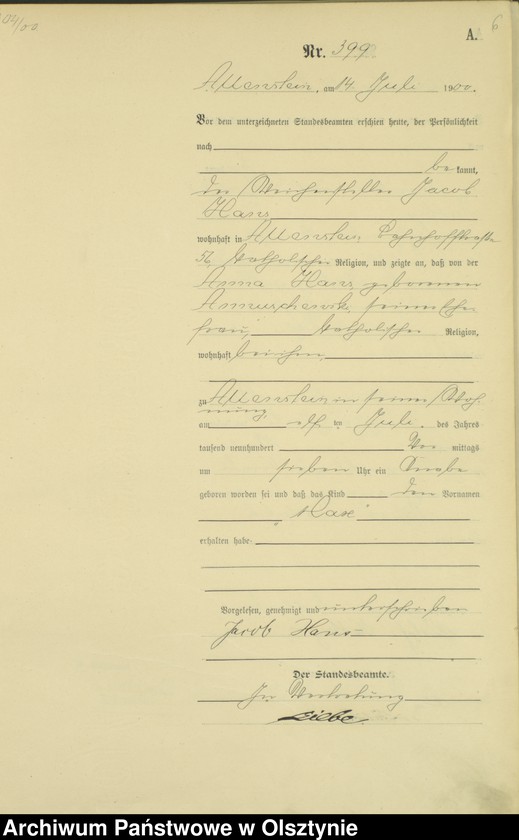 A. 6
Nr. 399
Allenstein, am 14. Juli 1900.
Vor dem unterzeichneten Standesbeamten erschien heute, der Persönlichkeit
nach
be kannt,
der Weichensteller Jacob
Hans
wohnhaft in Allenstein Bahnhofstraße
katholischer Religion, und zeigte an, daß von der
Anna Hans geborenen
seiner Ehe-
frau, katholischer Religion,
wohnhaft bei ihm,
zu Allenstein in seiner Woh-
nung
am elf ten Juli des Jahres
tausend neunhundert Vor mittags
um sieben Uhr ein Knabe
geboren worden sei und daß das Kind den Vornamen
erhalten habe
Vorgelesen, genehmigt und unterschrieben
Jacob Hans
Der Standesbeamte.
In Vertretung
Archiwum Państwowe w Olsztynie